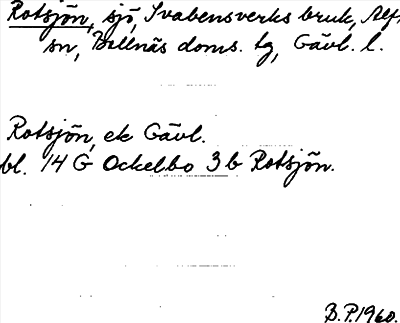 Rotsjön, sjö, Svabensverks bruk, Alf-
sn, Bollnäs doms. tg, Gävl. l.
Rotsjön, ek Gävl.
bl. 14 G Ockelbo 3 b Rotsjön.
B.P.1960.